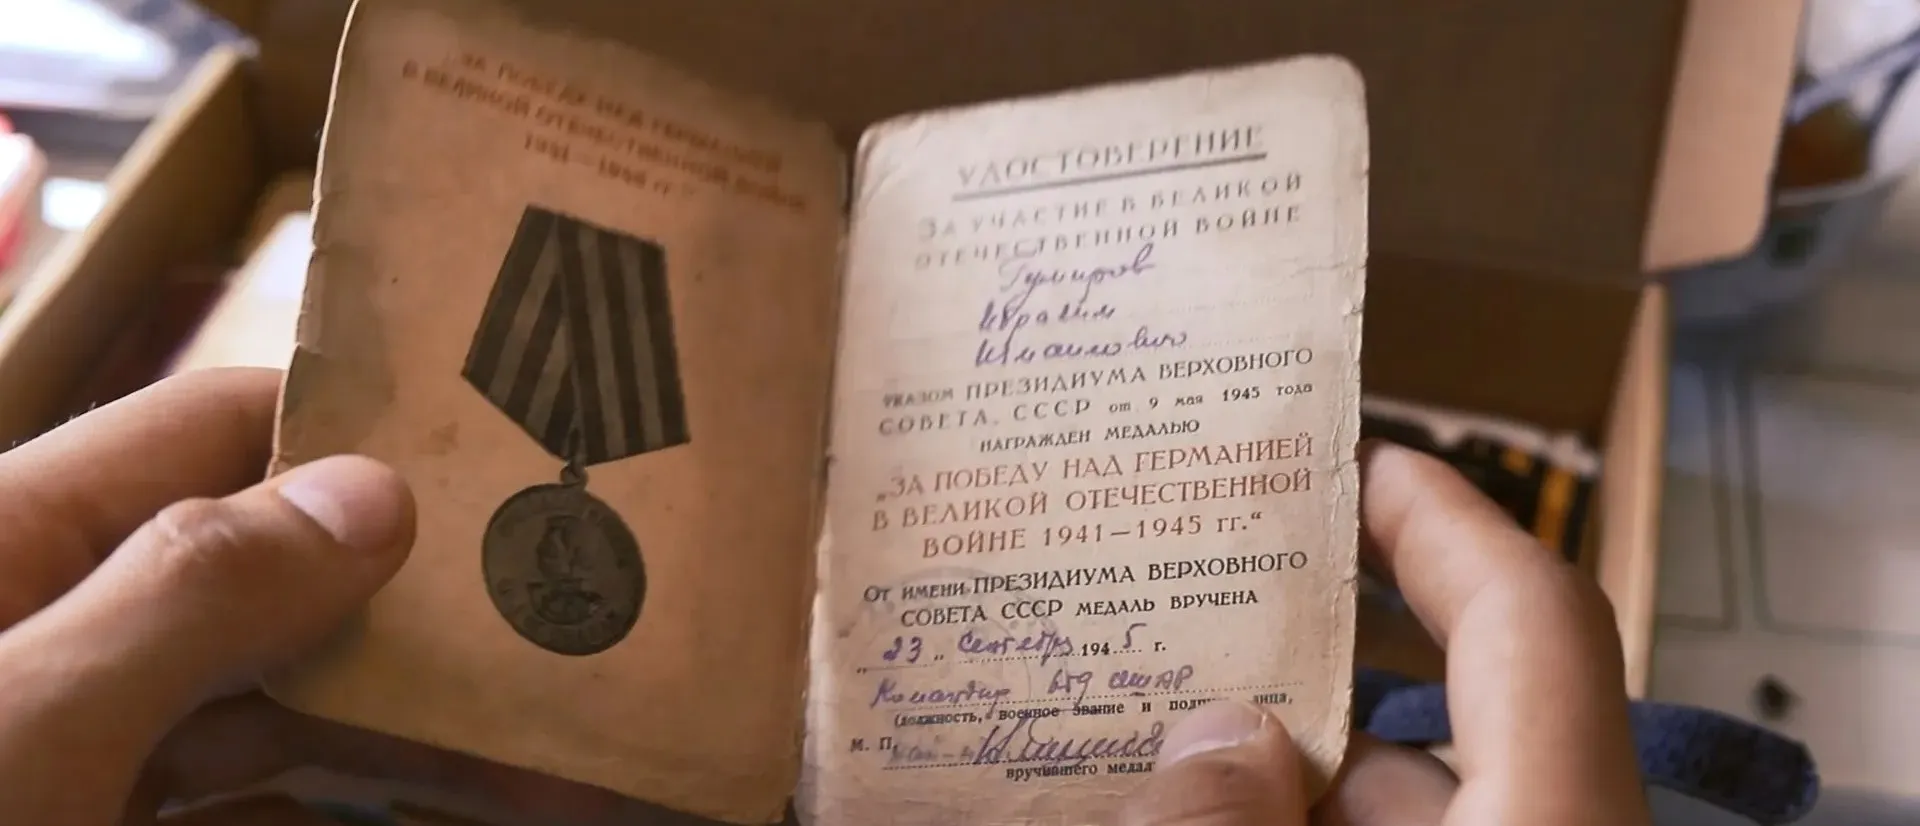 „ЗА ПОБЕДУ НАД ГЕРМАНИЕЙ
В ВЕЛИКОЙ ОТЕЧЕСТВЕННОЙ ВОЙНЕ
1941—1945 гг.“
УДОСТОВЕРЕНИЕ
ЗА УЧАСТИЕ В ВЕЛИКОЙ
ОТЕЧЕСТВЕННОЙ ВОЙНЕ
Ибрагим
Измаилович
УКАЗОМ ПРЕЗИДИУМА ВЕРХОВНОГО
СОВЕТА СССР от 9 мая 1945 года
НАГРАЖДЕН МЕДАЛЬЮ
„ЗА ПОБЕДУ НАД ГЕРМАНИЕЙ
В ВЕЛИКОЙ ОТЕЧЕСТВЕННОЙ
ВОЙНЕ 1941—1945 гг.“
ОТ ИМЕНИ ПРЕЗИДИУМА ВЕРХОВНОГО
СОВЕТА СССР МЕДАЛЬ ВРУЧЕНА
„23„ Сентября 1945 г.
Командир
(должность, военное звание и лица,
М. П.
вручившего медал